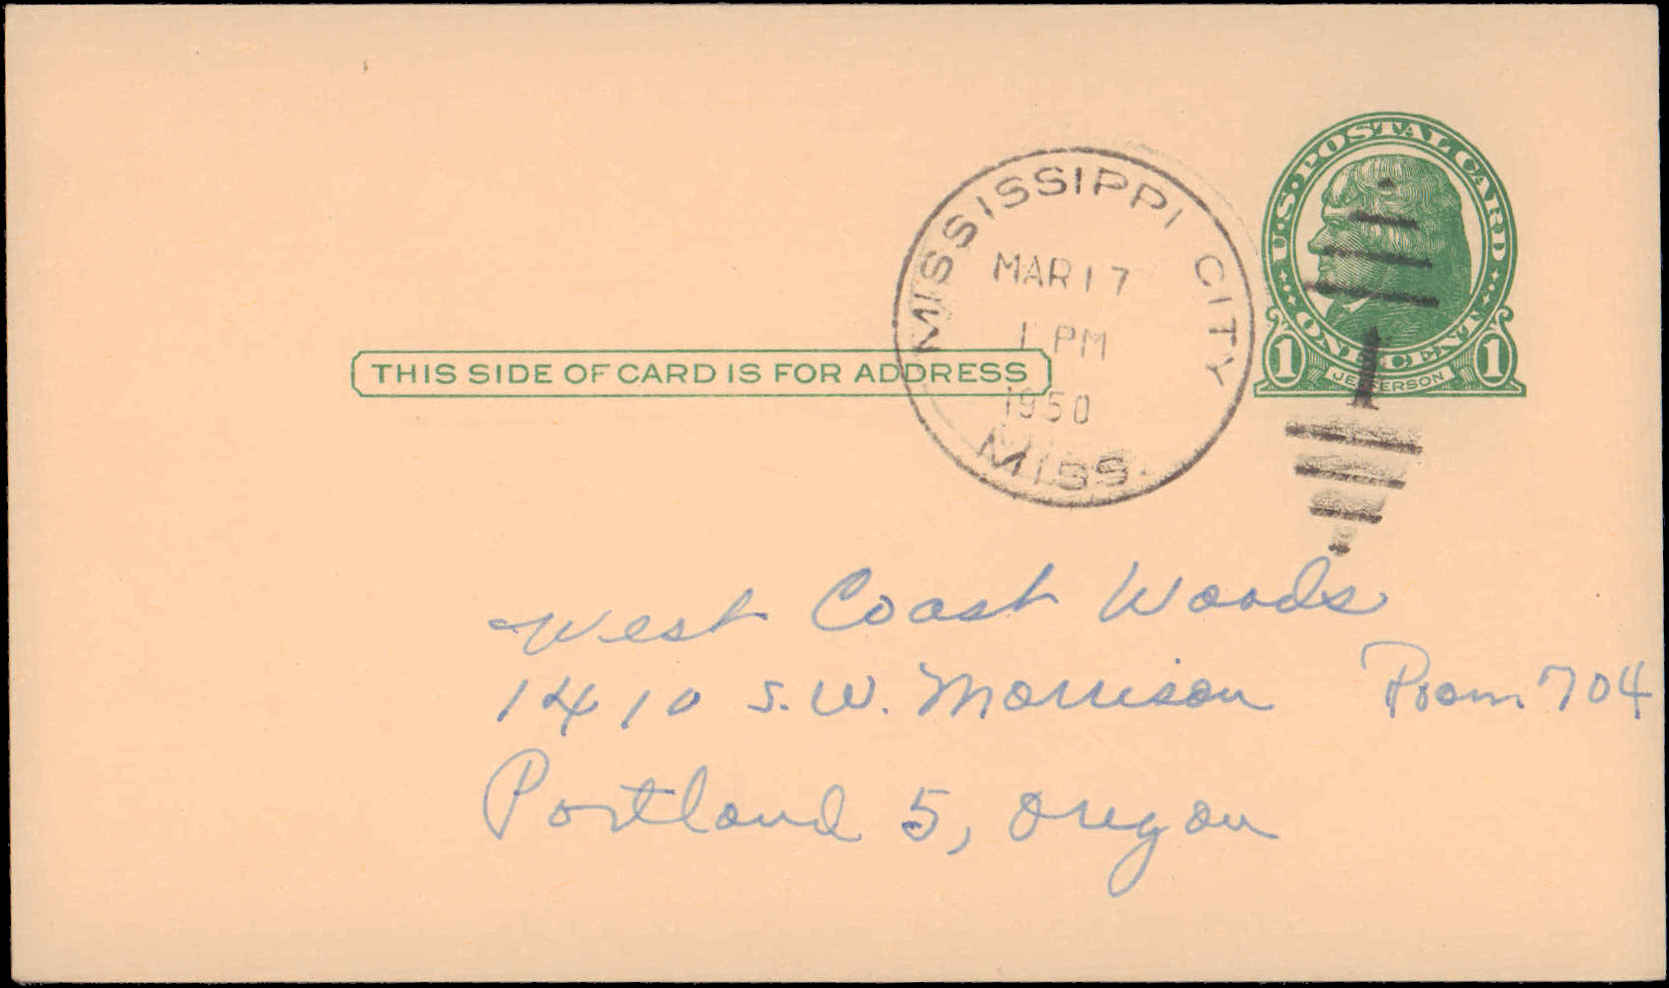 U.S. POSTAL CARD
ONE CENT
1 1
JEFFERSON
MISSISSIPPI CITY
MAR 17
1 PM
1950
MISS.
THIS SIDE OF CARD IS FOR ADDRESS
West Coast Woods
1410 S.W. Morrison Room 704
Portland 5, Oregon